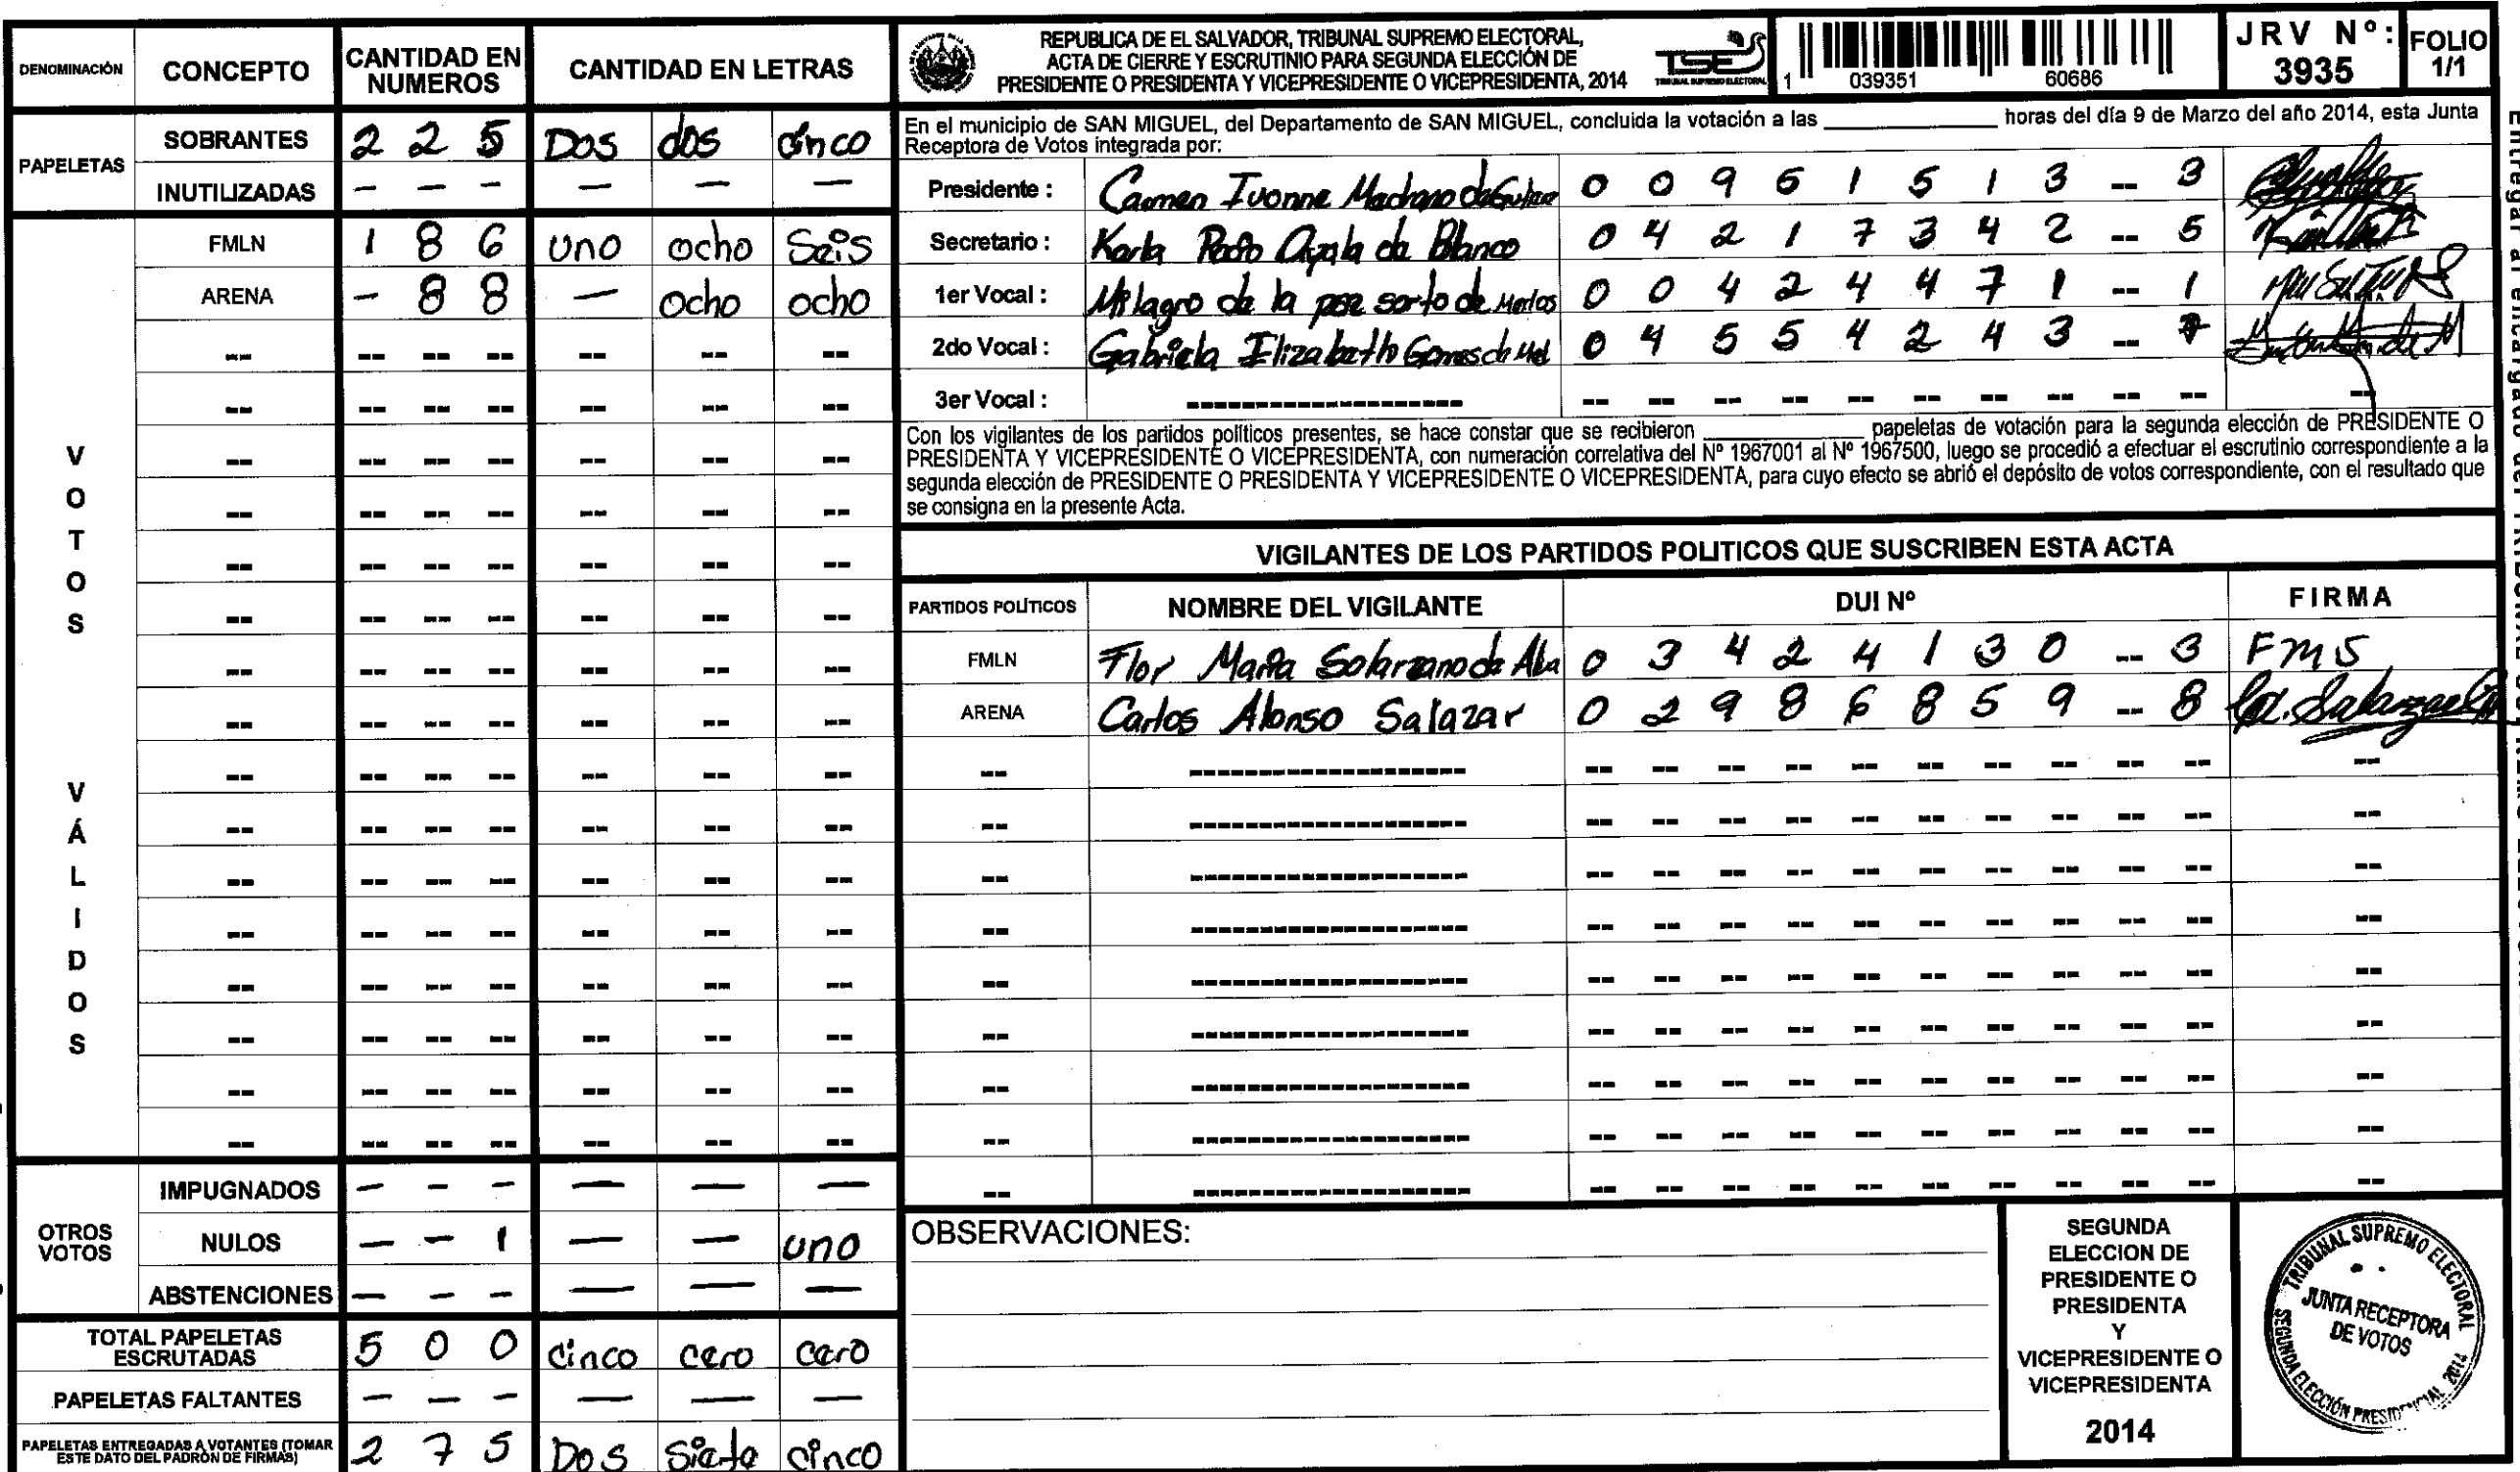 DENOMINACIÓN CONCEPTO CANTIDAD EN NUMEROS CANTIDAD EN LETRAS
PAPELETAS
SOBRANTES 2 2 5 Dos dos cinco
INUTILIZADAS - - - - - -
VOTOS VÁLIDOS
FMLN 1 8 6 uno ocho Seis
ARENA - 8 8 - ocho ocho
OTROS VOTOS
IMPUGNADOS - - - - - -
NULOS - - 1 - - uno
ABSTENCIONES - - - - - -
TOTAL PAPELETAS ESCRUTADAS 5 0 0 cinco cero cero
PAPELETAS FALTANTES - - - - - -
PAPELETAS ENTREGADAS A VOTANTES (TOMAR ESTE DATO DEL PADRÓN DE FIRMAS) 2 7 5 Dos Siete cinco
REPUBLICA DE EL SALVADOR, TRIBUNAL SUPREMO ELECTORAL,
ACTA DE CIERRE Y ESCRUTINIO PARA SEGUNDA ELECCIÓN DE
PRESIDENTE O PRESIDENTA Y VICEPRESIDENTE O VICEPRESIDENTA, 2014
TSE
TRIBUNAL SUPREMO ELECTORAL
1 039351 60686
JRV Nº: 3935
FOLIO 1/1
En el municipio de SAN MIGUEL, del Departamento de SAN MIGUEL, concluida la votación a las ____________ horas del día 9 de Marzo del año 2014, esta Junta
Receptora de Votos integrada por:
Presidente : Carmen Ivonne 0 0 9 5 1 5 1 3 -- 3
Secretario : Karla Ayala de Blanco 0 4 2 1 7 3 4 2 -- 5
1er Vocal : Milagro de la paz sorto de 0 0 4 2 4 4 7 1 -- 1
2do Vocal : Gabriela Elizabeth 0 4 5 5 4 2 4 3 --
3er Vocal :
Con los vigilantes de los partidos políticos presentes, se hace constar que se recibieron ____________ papeletas de votación para la segunda elección de PRESIDENTE O
PRESIDENTA Y VICEPRESIDENTE O VICEPRESIDENTA, con numeración correlativa del Nº 1967001 al Nº 1967500, luego se procedió a efectuar el escrutinio correspondiente a la
segunda elección de PRESIDENTE O PRESIDENTA Y VICEPRESIDENTE O VICEPRESIDENTA, para cuyo efecto se abrió el depósito de votos correspondiente, con el resultado que
se consigna en la presente Acta.
VIGILANTES DE LOS PARTIDOS POLITICOS QUE SUSCRIBEN ESTA ACTA
PARTIDOS POLÍTICOS NOMBRE DEL VIGILANTE DUI Nº FIRMA
FMLN Flor Maria Solorzano de 0 3 4 2 4 1 3 0 -- 3 FMS
ARENA Carlos Alonso Salazar 0 2 9 8 6 8 5 9 -- 8
OBSERVACIONES:
SEGUNDA
ELECCION DE
PRESIDENTE O
PRESIDENTA
Y
VICEPRESIDENTE O
VICEPRESIDENTA
2014
TRIBUNAL SUPREMO ELECTORAL
JUNTA RECEPTORA
DE VOTOS
SEGUNDA ELECCIÓN PRESIDENCIAL 2014